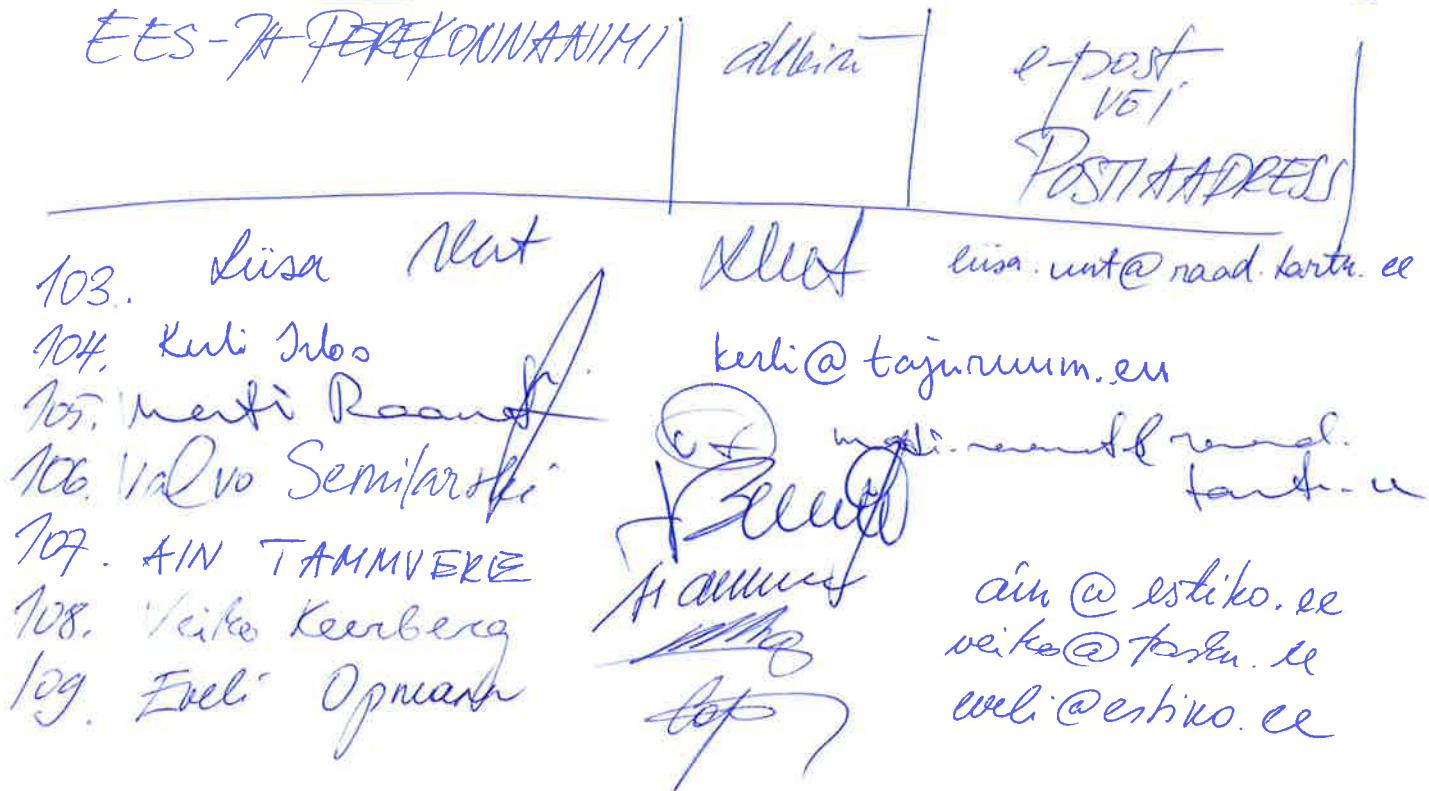 EES- JA PEREKONNANIMI allkiri e-post
VÕI
POSTIAADRESS
103. Liisa Unt liisa.unt@raad.tartu.ee
104. Kerli Irbo kerli@tajuruum.eu
105.
106. Valvo Semilarski
107. AIN TAMMVERE ain@estiko.ee
108. Veiko Keerberg veiko@tasku.ee
109. Eveli Opmann eveli@estiko.ee